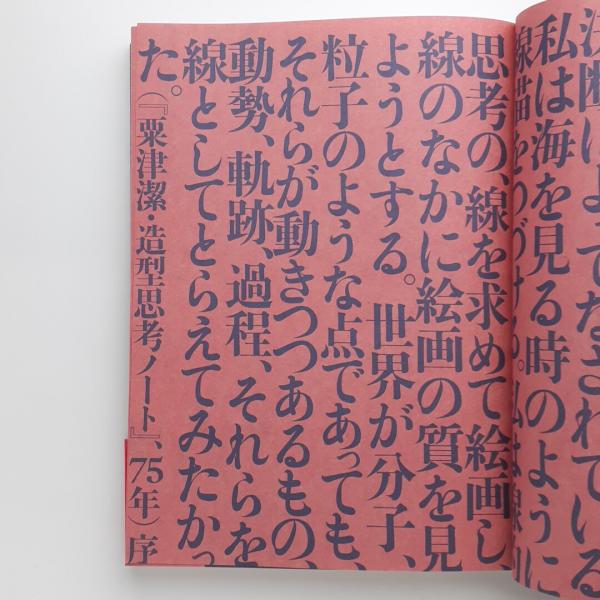 決断によってなされている
私は海を見る時のように
線描をつづける。私は線
思考の、線を求めて絵画し
線のなかに絵画の質を見
ようとする。世界が分子、
粒子のような点であっても、
それらが動きつつあるもの、
動勢、軌跡、過程、それらを
線としてとらえてみたかっ
た。（『粟津潔・造型思考ノート』、75年）序